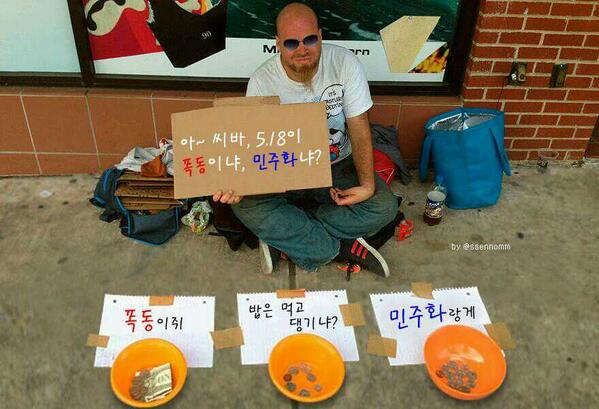 아~ 씨바, 5.18이
폭동이냐, 민주화냐?
by @ssennomm
폭동이쥐
밥은 먹고
댕기냐?
민주화랑게
90